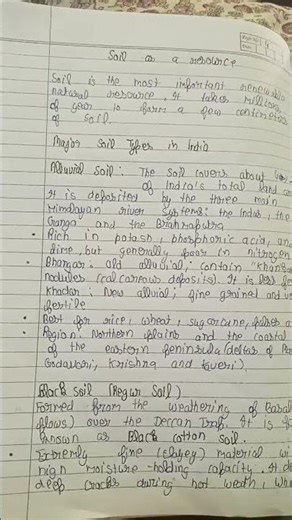 Soil as a resource
Soil is the most important renewable
natural resource. It takes millions
of year to form a few centimeters
of soil.
Major Soil Types in India
Alluvial soil: The soil covers about
of India's total land
It is deposited by the three main
Himalayan river systems: the Indus, the
Ganga and the Brahmaputra
• Rich in potash, phosphoric acid, an
lime, but generally poor in nitrogen
• Bhangar: old alluvial; contain "Khan
nodules (calcareous deposits). It is less fe
Khadar: New alluvial; fine grained and
fertile
• Best for rice, wheat, sugarcane, pulses a
• Region: Northern plains and the coastal
of the eastern peninsula (deltas of
Godaveri, Krishna and Kaveri).
Black soil (Regur Soil)
Formed from the weathering of Basal
flows) over the Deccan Trap. It is
known as Black cotton soil.
• Extremly fine (clayey) material wi
high moisture-holding capacity. It d
deep cracks during hot weath, wh